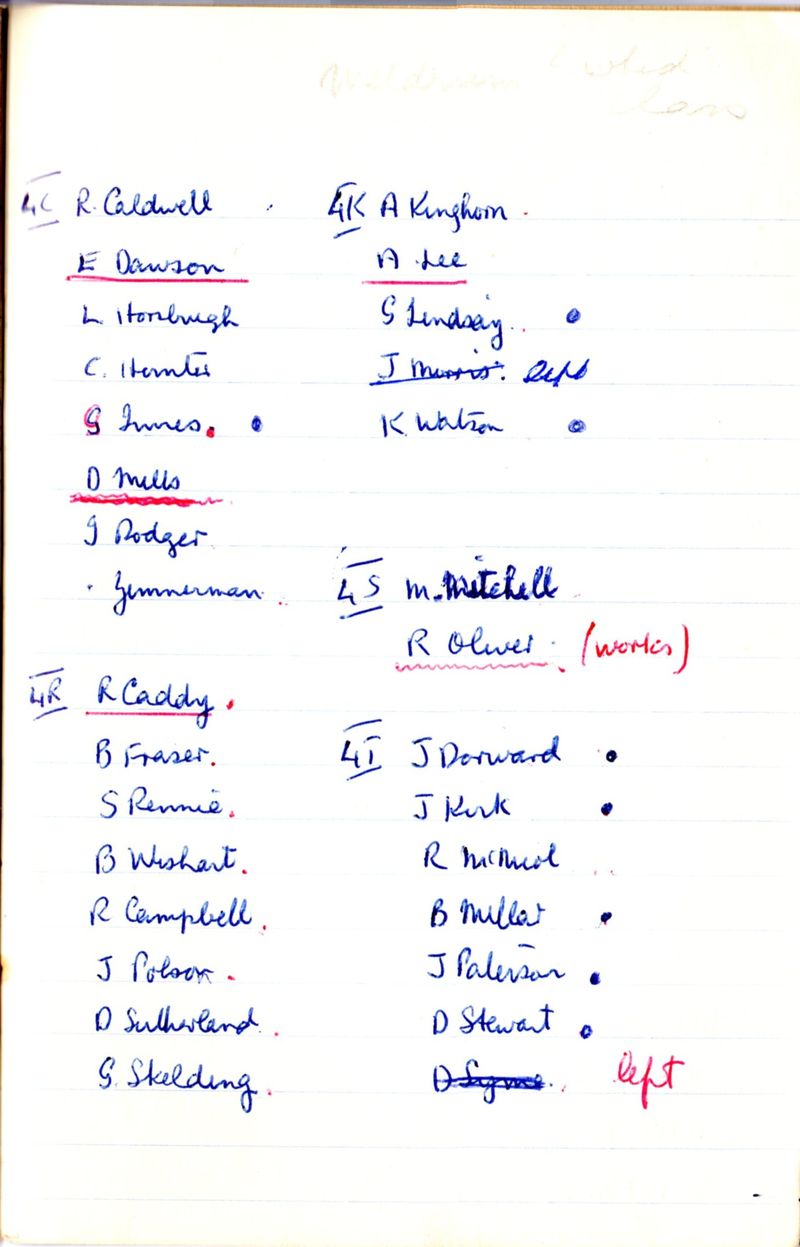 Meldrum
4C R. Caldwell
E Dawson
L. Horsburgh
C. Hunter
G Innes.
D Mills
J Rodger
Zimmerman
4R R Caddy.
B Fraser.
S Rennie.
B Wishart.
R Campbell.
J Polson.
D Sutherland.
G. Skelding.
4K A Kinghorn.
A. Lee
G Lindsay.
J Morris. left
K. Watson
4S M. Mitchell
R Oliver. (works)
4T J Dorward
J Kirk
R McNicol
B Millar
J Paterson
D Stewart
D Syme. left